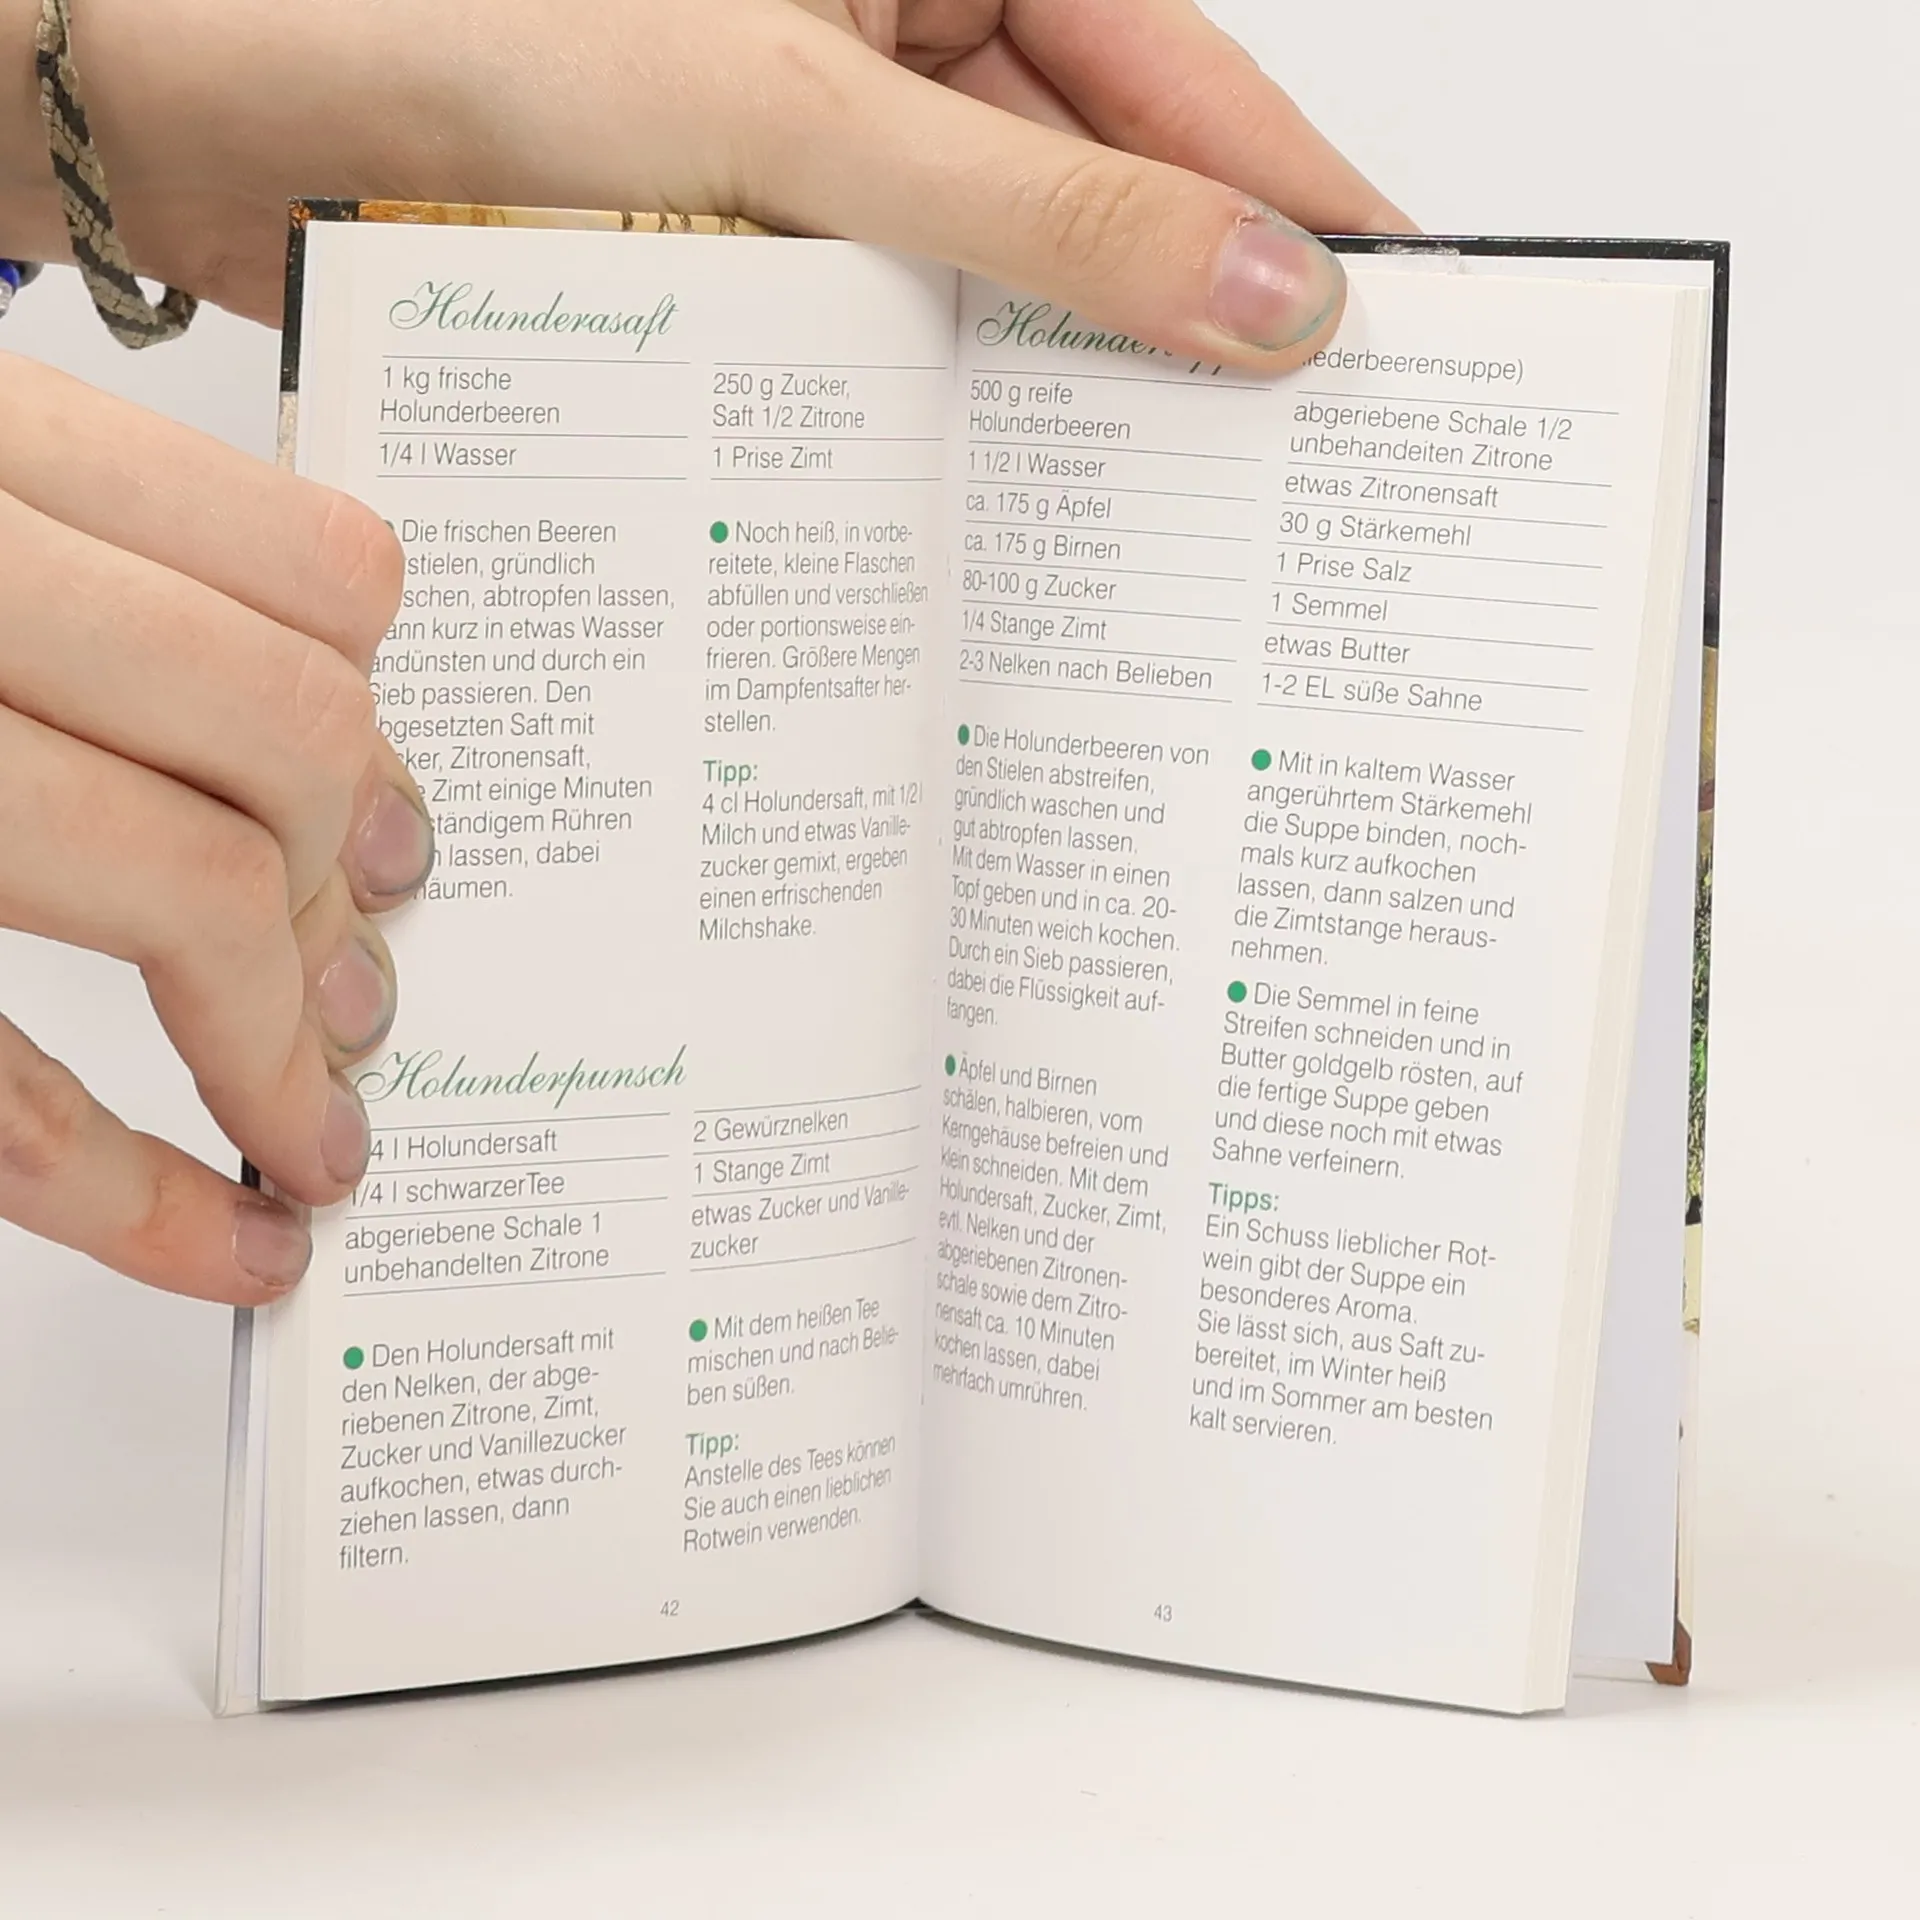 Holunderasaft
1 kg frische
Holunderbeeren
1/4 l Wasser
250 g Zucker,
Saft 1/2 Zitrone
1 Prise Zimt
Die frischen Beeren
gründlich
abtropfen lassen,
kurz in etwas Wasser
und durch ein
passieren. Den
Saft mit
Zitronensaft,
Zimt einige Minuten
Rühren
lassen, dabei
● Noch heiß, in vorbe-
reitete, kleine Flaschen
abfüllen und verschließen
oder portionsweise ein-
frieren. Größere Mengen
im Dampfentsafter her-
stellen.
Tipp:
4 cl Holundersaft, mit 1/2 l
Milch und etwas Vanille-
zucker gemixt, ergeben
einen erfrischenden
Milchshake.
Holunderpunsch
l Holundersaft
1/4 l schwarzerTee
abgeriebene Schale 1
unbehandelten Zitrone
2 Gewürznelken
1 Stange Zimt
etwas Zucker und Vanille-
zucker
● Den Holundersaft mit
den Nelken, der abge-
riebenen Zitrone, Zimt,
Zucker und Vanillezucker
aufkochen, etwas durch-
ziehen lassen, dann
filtern.
● Mit dem heißen Tee
mischen und nach Belie-
ben süßen.
Tipp:
Anstelle des Tees können
Sie auch einen lieblichen
Rotwein verwenden.
42
500 g reife
Holunderbeeren
1 1/2 l Wasser
ca. 175 g Äpfel
ca. 175 g Birnen
80-100 g Zucker
1/4 Stange Zimt
2-3 Nelken nach Belieben
abgeriebene Schale 1/2
unbehandeiten Zitrone
etwas Zitronensaft
30 g Stärkemehl
1 Prise Salz
1 Semmel
etwas Butter
1-2 EL süße Sahne
● Die Holunderbeeren von
den Stielen abstreifen,
gründlich waschen und
gut abtropfen lassen.
Mit dem Wasser in einen
Topf geben und in ca. 20-
30 Minuten weich kochen.
Durch ein Sieb passieren,
dabei die Flüssigkeit auf-
fangen.
● Äpfel und Birnen
schälen, halbieren, vom
Kerngehäuse befreien und
klein schneiden. Mit dem
Holundersaft, Zucker, Zimt,
evtl. Nelken und der
abgeriebenen Zitronen-
schale sowie dem Zitro-
nensaft ca. 10 Minuten
kochen lassen, dabei
mehrfach umrühren.
● Mit in kaltem Wasser
angerührtem Stärkemehl
die Suppe binden, noch-
mals kurz aufkochen
lassen, dann salzen und
die Zimtstange heraus-
nehmen.
● Die Semmel in feine
Streifen schneiden und in
Butter goldgelb rösten, auf
die fertige Suppe geben
und diese noch mit etwas
Sahne verfeinern.
Tipps:
Ein Schuss lieblicher Rot-
wein gibt der Suppe ein
besonderes Aroma.
Sie lässt sich, aus Saft zu-
bereitet, im Winter heiß
und im Sommer am besten
kalt servieren.
43